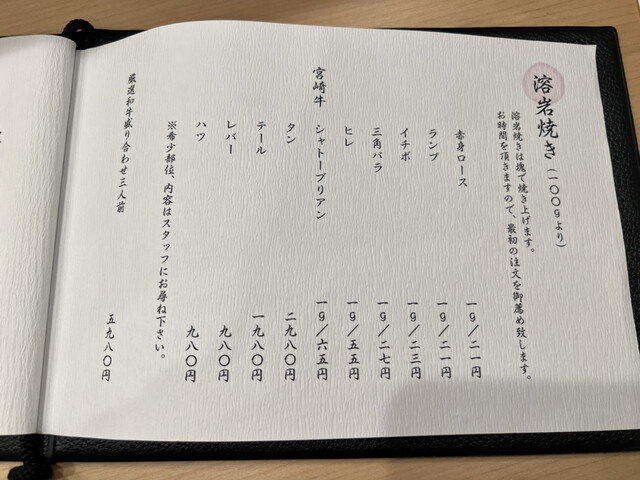 溶岩焼き（一〇〇gより）
溶岩焼きは塊で焼き上げます。
お時間を頂きますので、最初の注文を御薦め致します。
赤身ロース 一g／二一円
ランプ 一g／二一円
イチボ 一g／二三円
三角バラ 一g／二七円
ヒレ 一g／五五円
宮崎牛 シャトーブリアン 一g／六五円
タン 二九八〇円
テール 一九八〇円
レバー 九八〇円
ハツ 九八〇円
※希少部位、内容はスタッフにお尋ね下さい。
厳選和牛盛り合わせ三人前 五九八〇円